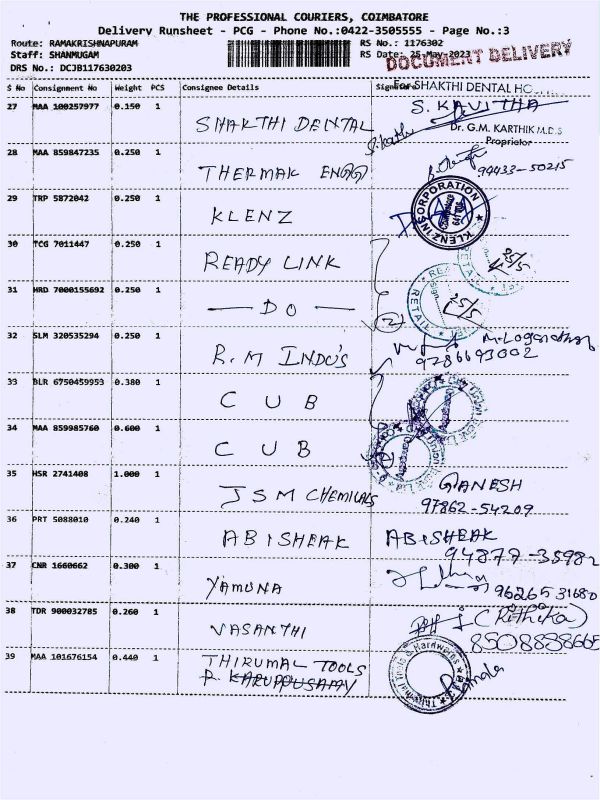 THE PROFESSIONAL COURIERS, COIMBATORE
Delivery Runsheet - PCG - Phone No.:0422-3505555 - Page No.:3
Route: RAMAKRISHNAPURAM
RS No.: 1176302
Staff: SHANMUGAM
RS Date: 25-May-2023
DOCUMENT DELIVERY
DRS No.: DCJB117630203
S No Consignment No Weight PCS Consignee Details
For SHAKTHI DENTAL
27 MAA 100257977 0.150 1 SHAKTHI DENTAL S. KAVITHA
Dr. G.M. KARTHIK M.D.S
Proprietor
28 MAA 859847235 0.250 1 THERMAK ENGG 99433-50215
29 TRP 5872042 0.250 1 KLENZ KLENZ CORPORATION
30 TCG 7011447 0.250 1 READY LINK 25/5
31 HRD 7000155692 0.250 1 — DO — RETAIL 25/5
2
32 SLM 320535294 0.250 1 R.M INDO'S M. Loganathan
9286693002
33 BLR 6750459953 0.380 1 C U B
34 MAA 859985760 0.600 1 C U B 2
35 HSR 2741408 1.000 1 JSM CHEMICALS GANESH
97862-54209
36 PRT 5088010 0.240 1 ABISHEAK ABISHEAK
94877-35982
37 CNR 1660662 0.300 1 YAMUNA 9626531680
38 TDR 900032785 0.260 1 VASANTHI (Rithika)
8508898665
39 MAA 101676154 0.440 1 THIRUMAL TOOLS Thirumal Tools & Hardwares
R. KARUPPUSAMY